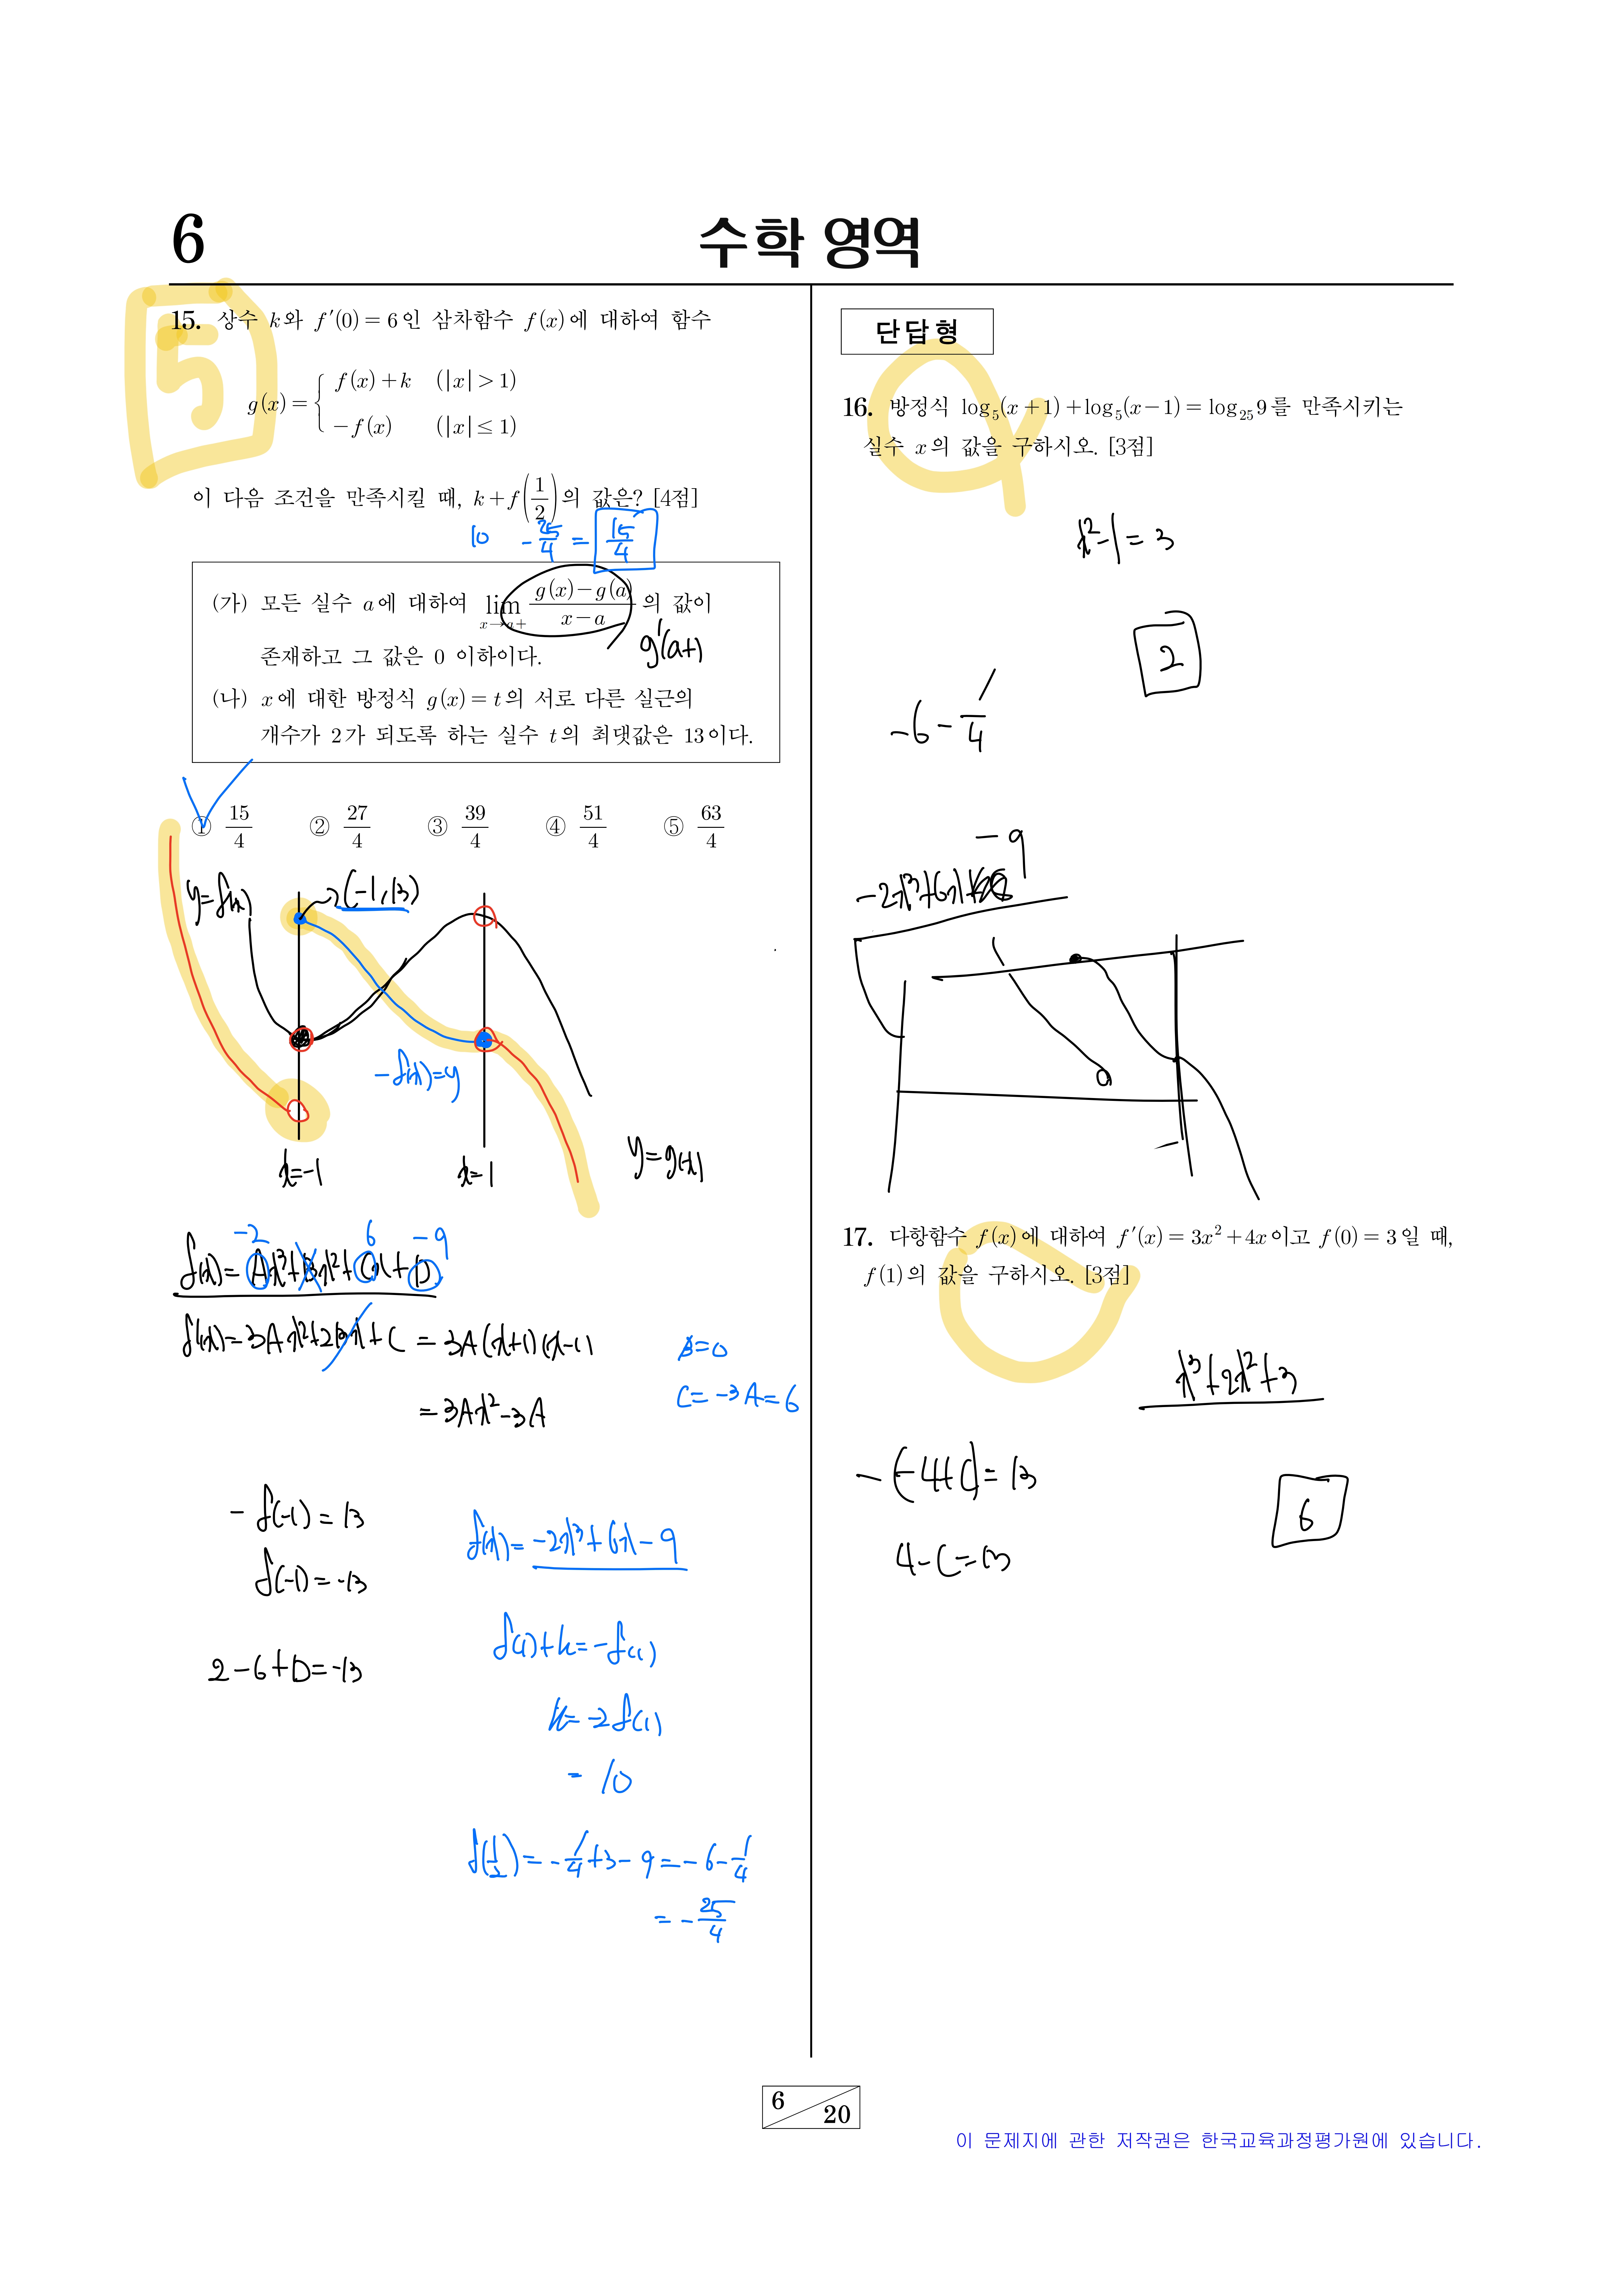 6
수학 영역
5
15. 상수 k와 f′(0)=6인 삼차함수 f(x)에 대하여 함수
g(x)={ f(x)+k (|x|>1)
-f(x) (|x|≤1)
이 다음 조건을 만족시킬 때, k+f(1/2)의 값은? [4점]
10 -25/4 = 15/4
(가) 모든 실수 a에 대하여 lim x→a+ (g(x)-g(a))/(x-a) 의 값이
존재하고 그 값은 0 이하이다.
g′(a+)
(나) x에 대한 방정식 g(x)=t의 서로 다른 실근의
개수가 2가 되도록 하는 실수 t의 최댓값은 13이다.
① 15/4 ② 27/4 ③ 39/4 ④ 51/4 ⑤ 63/4
y=f(x)
(-1,13)
-f(x)=y
x=-1
x=1
y=g(x)
-2 6 -9
f(x)=Ax³+Bx²+Cx+D
f′(x)=3Ax²+2Bx+C =3A(x+1)(x-1)
=3Ax²-3A
B=0
C=-3A=6
-f(-1)=13
f(-1)=-13
2-6+D=-13
f(x)=-2x³+6x-9
f(1)+k=-f(1)
k=-2f(1)
=10
f(1/2)=-1/4+3-9=-6-1/4
=-25/4
단답형
16. 방정식 log₅(x+1)+log₅(x-1)=log₂₅9를 만족시키는
실수 x의 값을 구하시오. [3점]
x²-1=3
2
-6-1/4
-9
-2x³+6x+
17. 다항함수 f(x)에 대하여 f′(x)=3x²+4x이고 f(0)=3일 때,
f(1)의 값을 구하시오. [3점]
x³+2x²+3
-(-4+C)=13
6
4-C=13
6
20
이 문제지에 관한 저작권은 한국교육과정평가원에 있습니다.